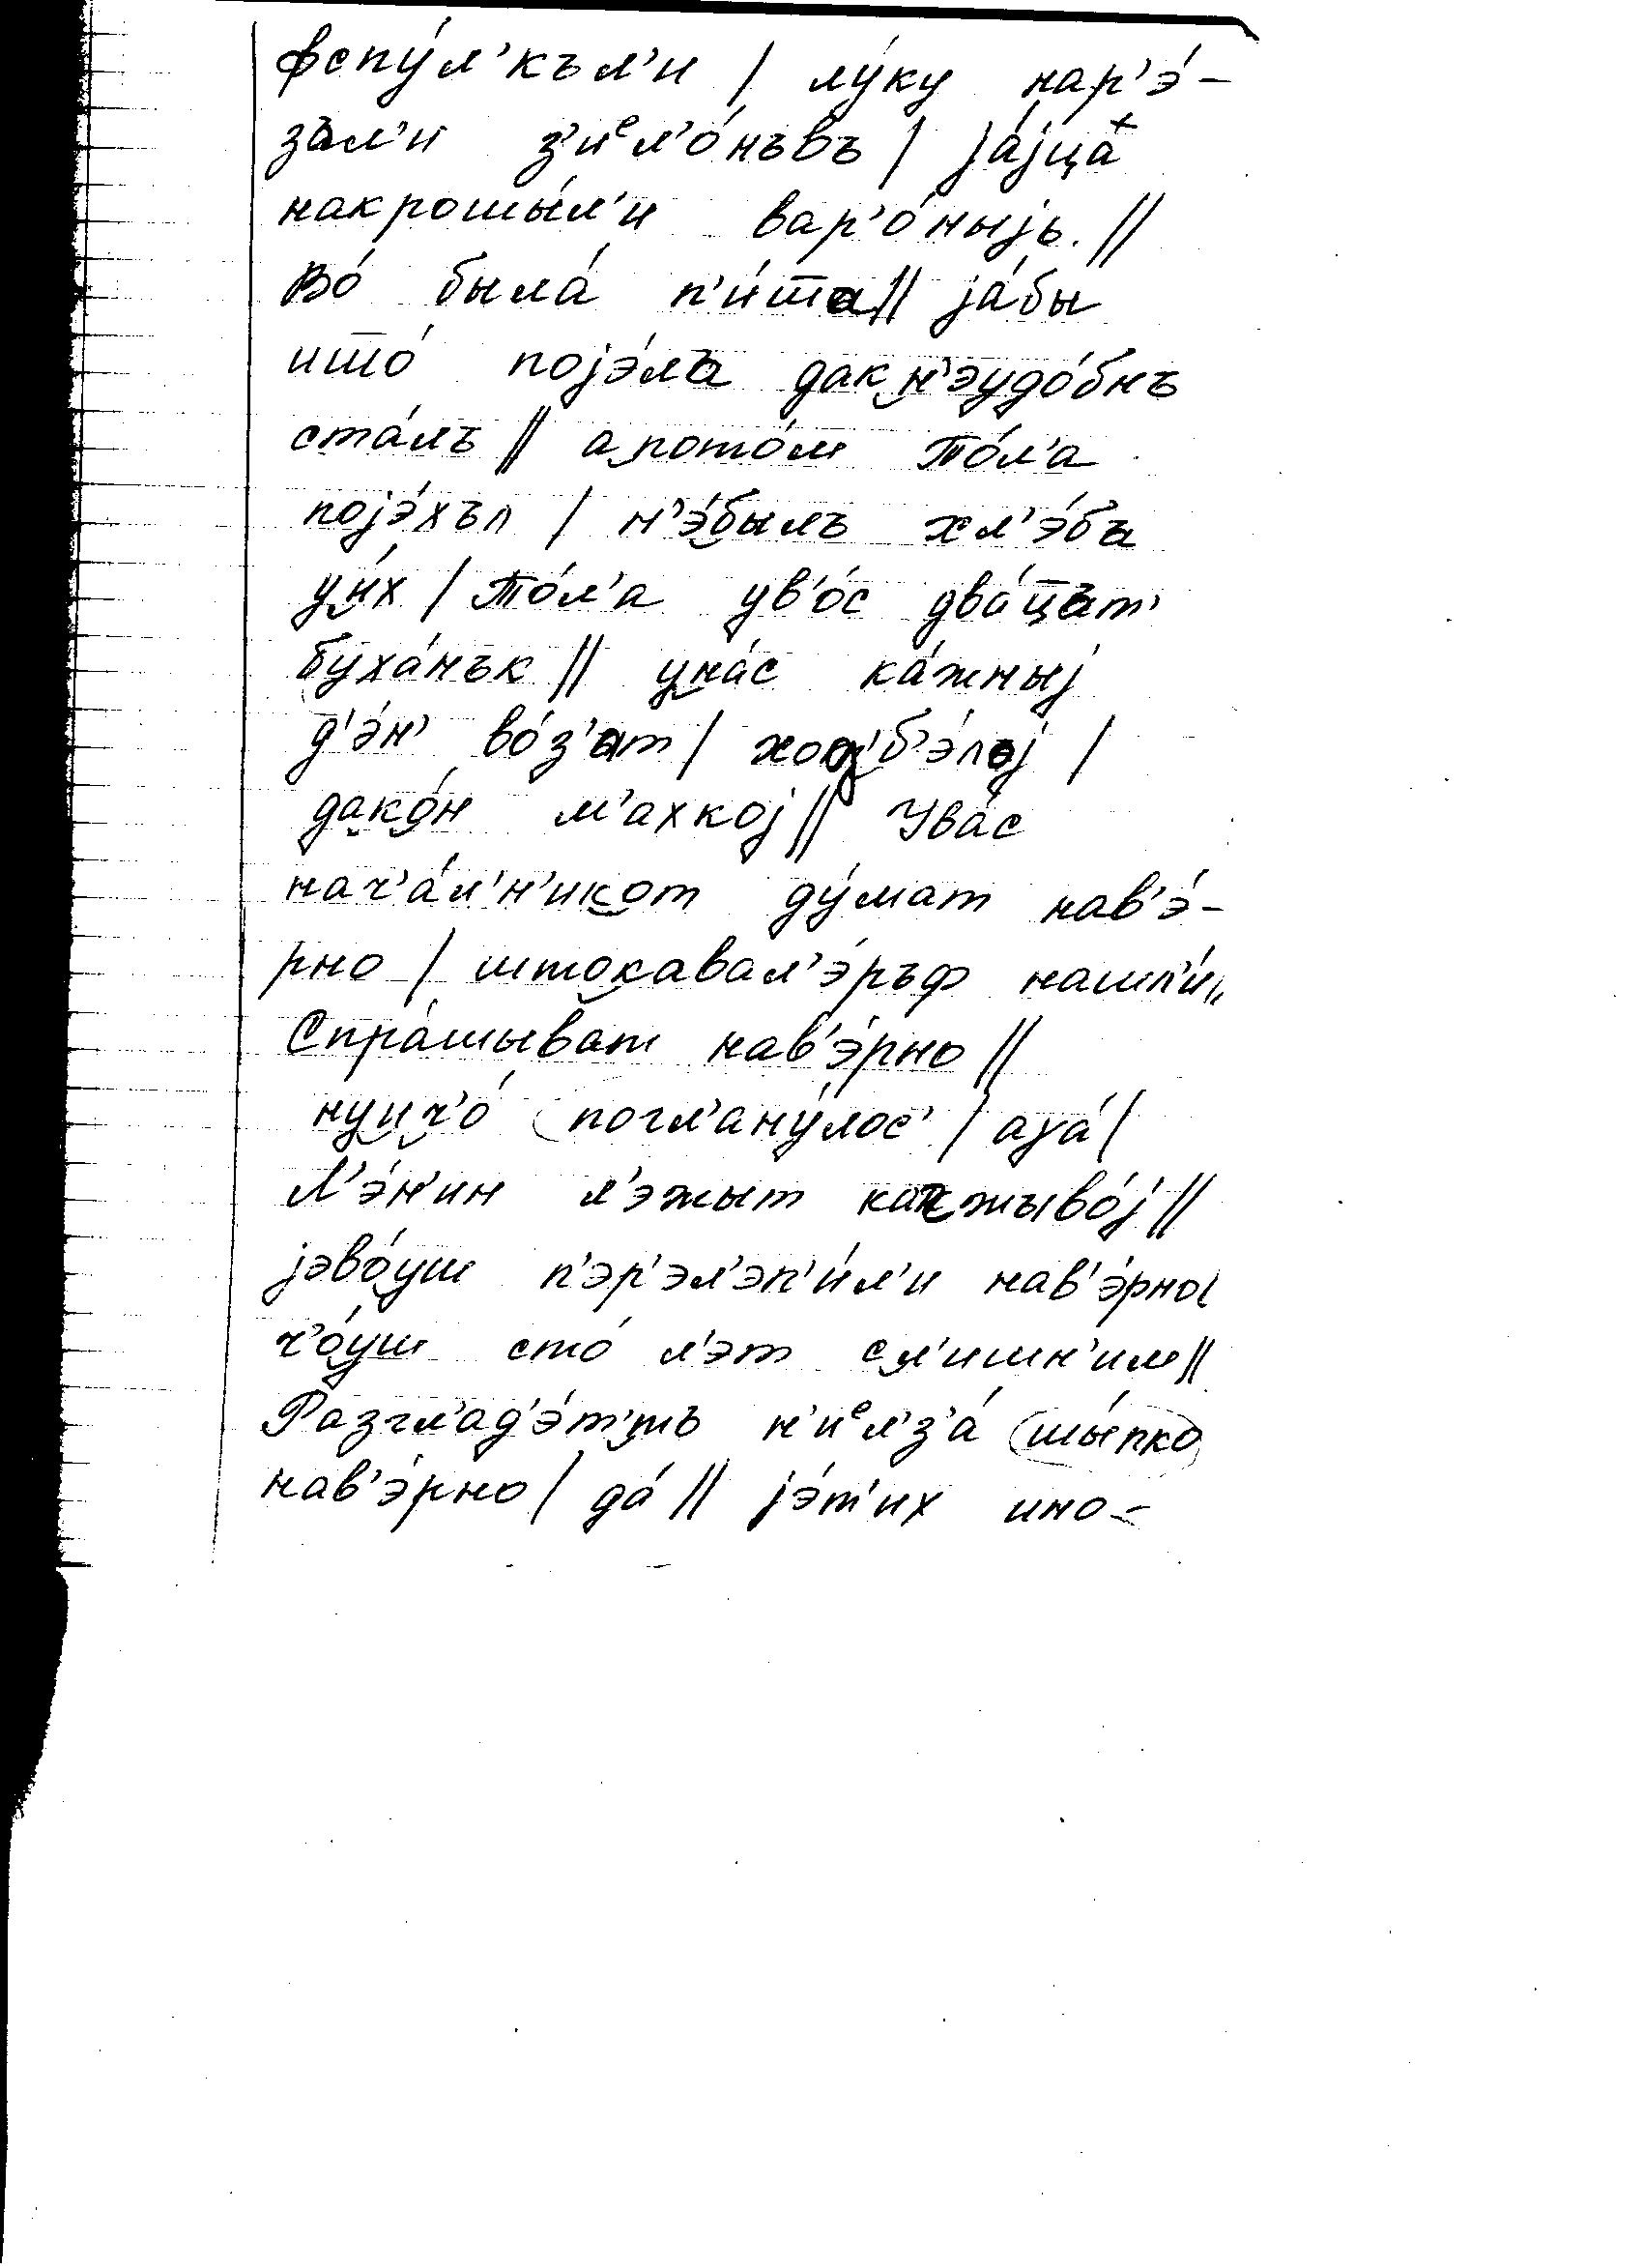 фспу́л’къл’и / лу́ку нар’э́-
зъл’и з’иᵉл’о́нъвъ / jа́jца́
накрошы́л’и вар’о́ныjь. //
Во́ была́ п’и́та // jа́бы
ишто́ поjэ́ла дак н’эудо́бнъ
ста́лъ // а пото́м То́л’а
поjэ́хъл / н’э́былъ хл’э́бъ
уни́х / То́л’а ув’о́с два́цът’
буха́нък // уна́с ка́жныj
д’э́н’ во́з’ат / ход’ б’э́лоj /
дако́н м’ахкоj // Ува́с
нач’а́л’н’икот ду́мат нав’э́-
рно / штокавал’э́ръф нашл’и́ //
Спра́шыват нав’э́рно //
нуич’о́ погл’ану́лос’ / аγа́ /
Л’э́н’ин л’эжыт какжыво́j //
jэво́уш п’эр’эл’эп’и́л’и нав’э́рно /
ч’о́уш сто́ л’эт сл’ишн’им //
Разгл’ад’э́т’тъ н’иᵉл’з’а́ шы́пко
нав’э́рно / да́ // jэ́т’их ино-